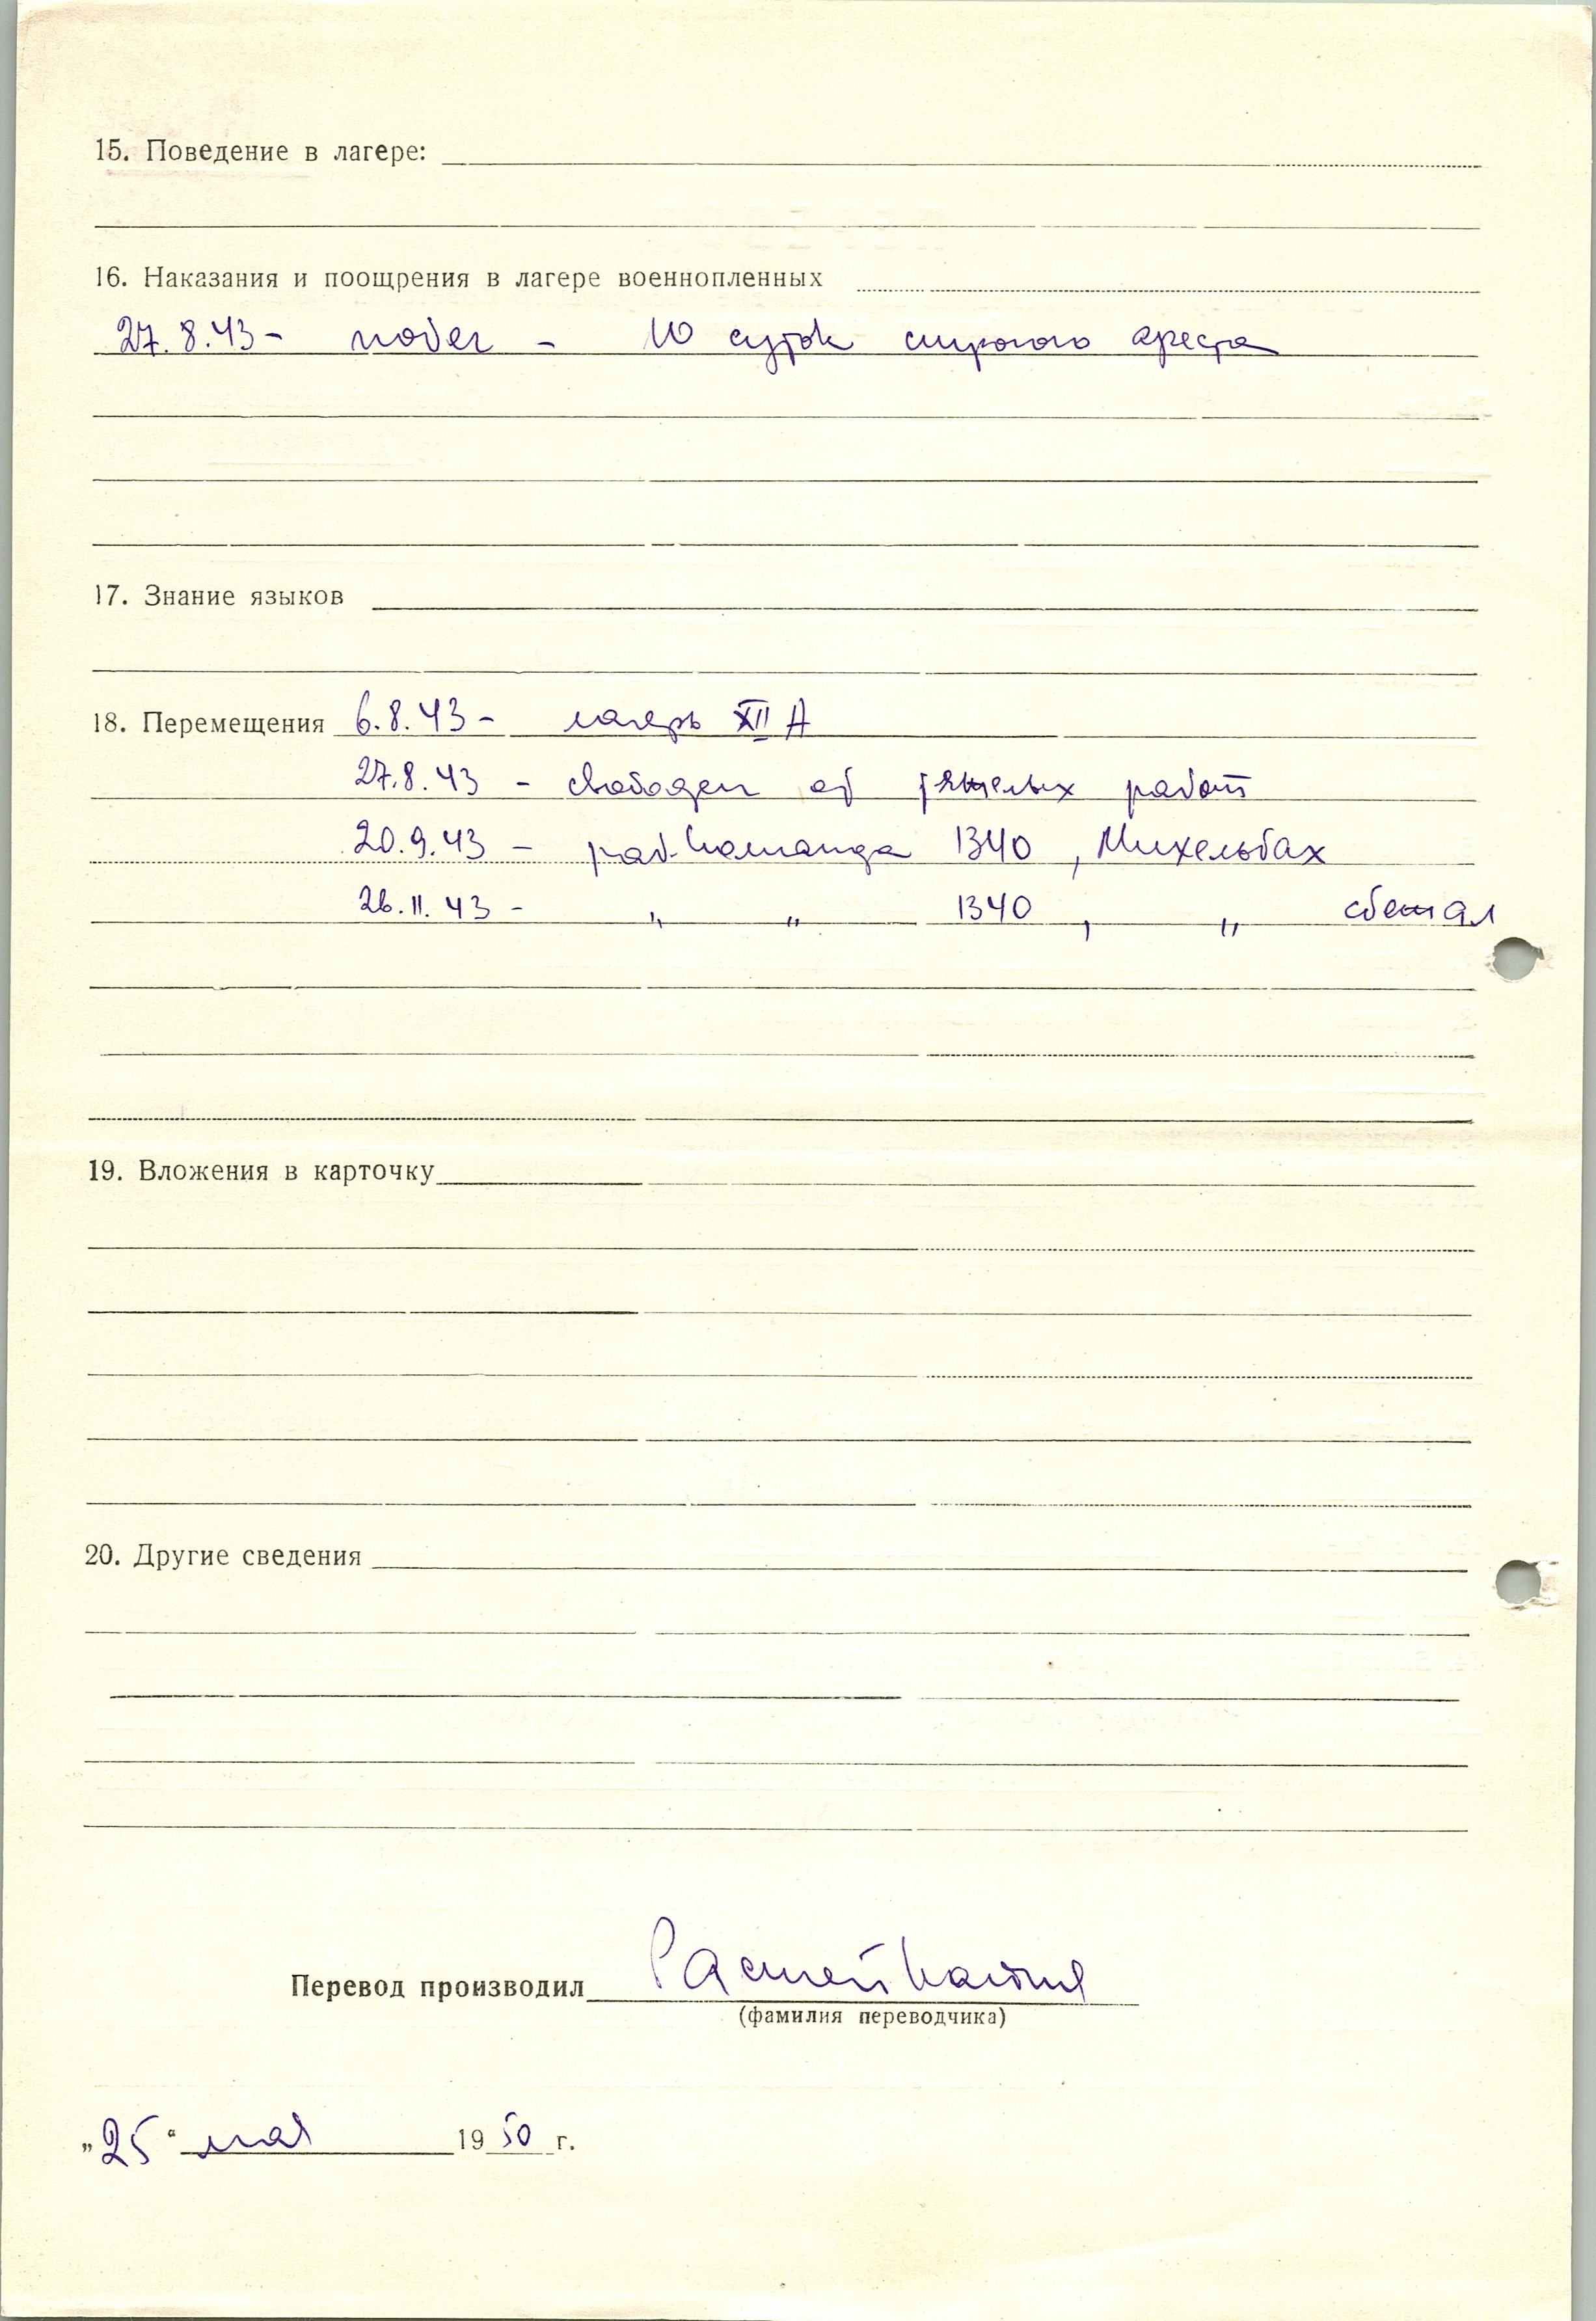 15. Поведение в лагере:
16. Наказания и поощрения в лагере военнопленных
27.8.43 - побег - 10 суток строгого ареста
17. Знание языков
18. Перемещения 6.8.43 - лагерь XII А
27.8.43 - свободен от тяжелых работ
20.9.43 - раб. команда 1340, Михельбах
26.11.43 - " " 1340, " сбежал
19. Вложения в карточку
20. Другие сведения
Перевод производил
(фамилия переводчика)
„25“ мая 1950 г.